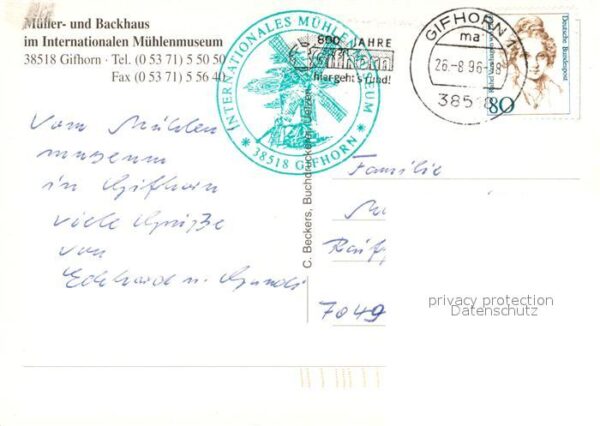 Müller- und Backhaus
im Internationalen Mühlenmuseum
38518 Gifhorn · Tel. (0 53 71) 5 50 50
Fax (0 53 71) 5 56 40
INTERNATIONALES MÜHLENMUSEUM
* 38518 GIFHORN *
800 JAHRE
Gifhorn
hier geht's rund!
GIFHORN 1
ma
26.-8.96-18
38518
80
Deutsche Bundespost
Vom Mühlen
museum
in Gifhorn
viele Grüße
von
Eckhard u. Gundi
C. Beckers, Buchdruckerei, Uelzen
Familie
7049
privacy protection
Datenschutz